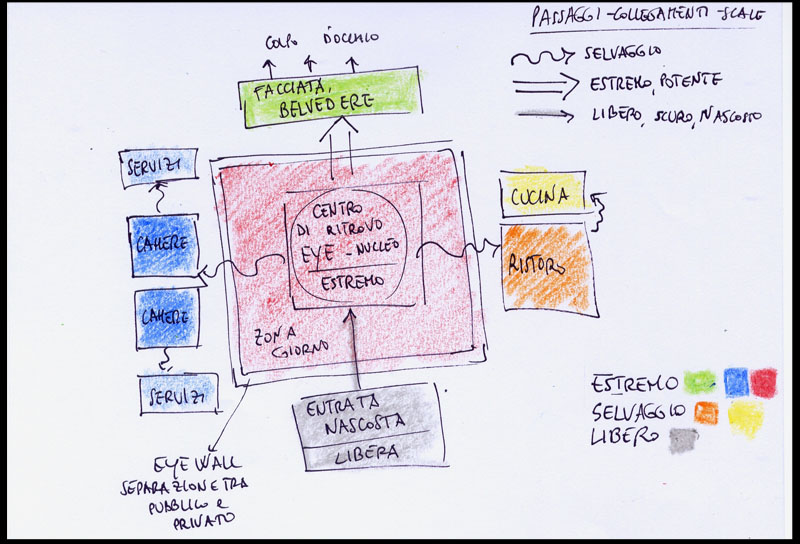 PASSAGGI-COLLEGAMENTI-SCALE
SELVAGGIO
ESTREMO, POTENTE
LIBERO, SCURO, NASCOSTO
COLPO D'OCCHIO
FACCIATA,
BELVEDERE
SERVIZI
CAMERE
CAMERE
SERVIZI
CENTRO
DI RITROVO
EYE-NUCLEO
ESTREMO
ZONA
GIORNO
CUCINA
RISTORO
ENTRATA
NASCOSTA
LIBERA
EYE WALL
SEPARAZIONE TRA
PUBBLICO e
PRIVATO
ESTREMO
SELVAGGIO
LIBERO